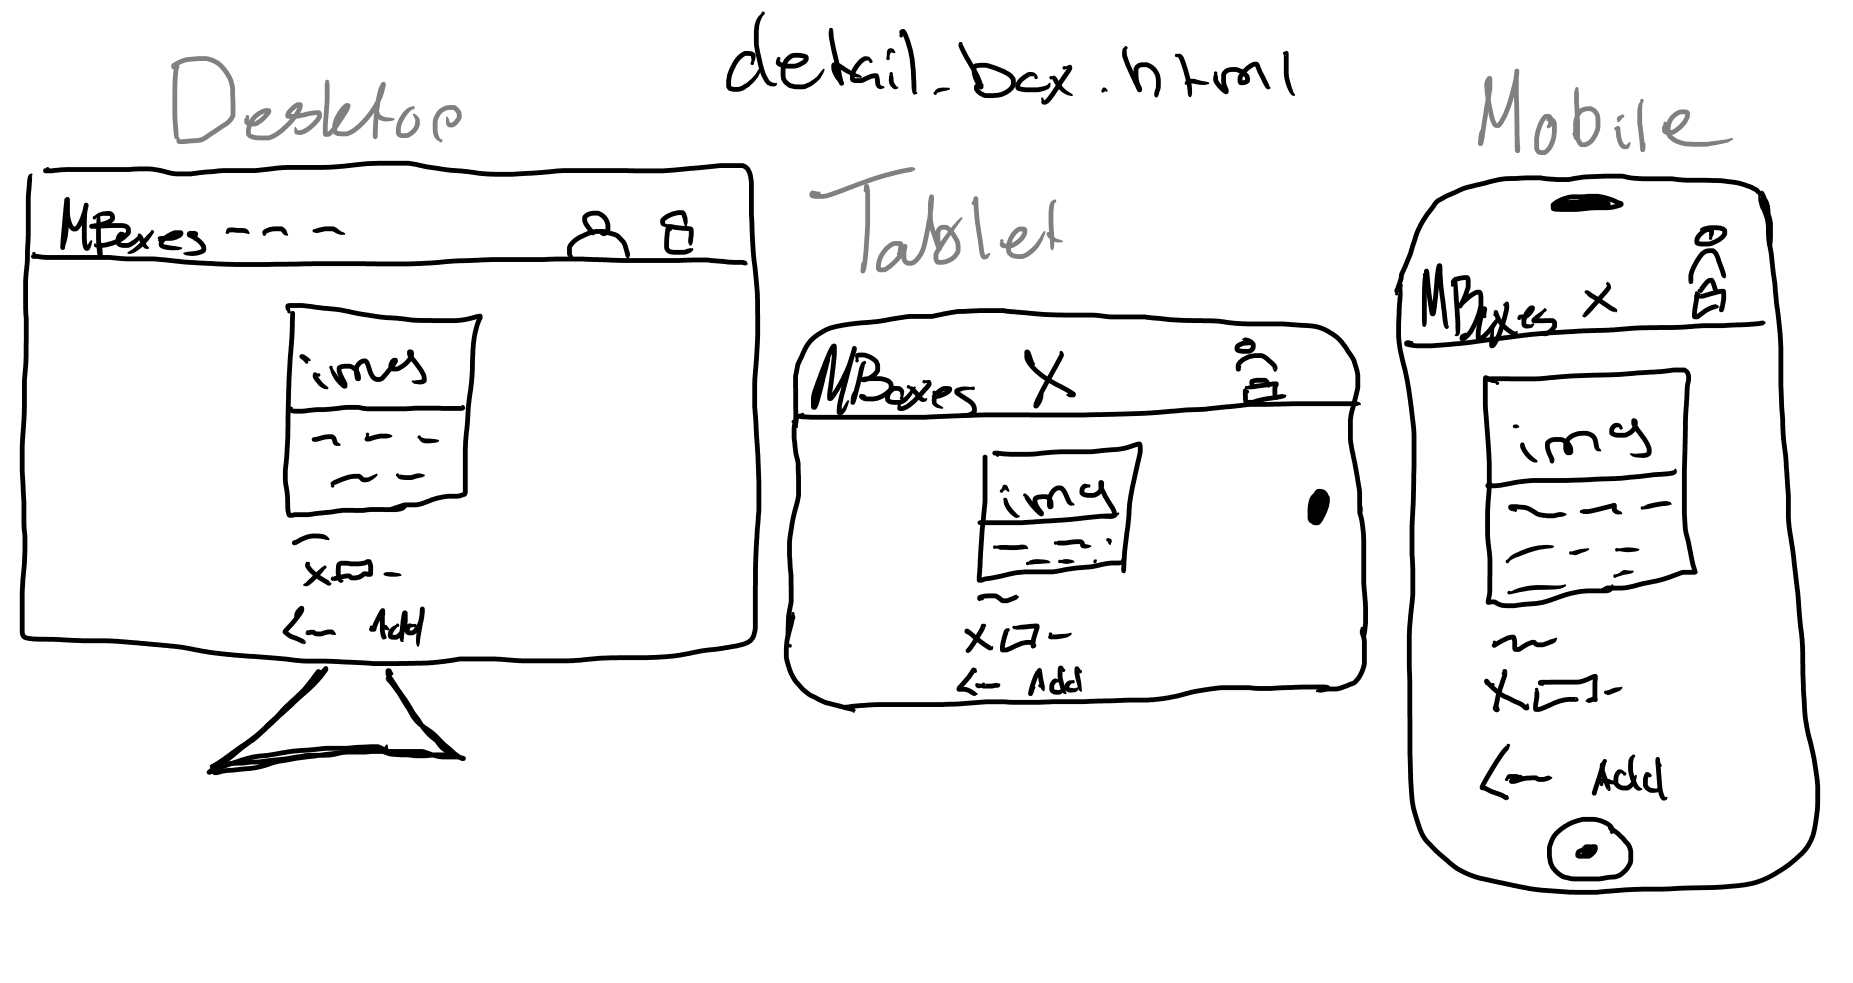 detail_box.html
Desktop
MBoxes
imgs
<- Add
Tablet
MBoxes X
img
X -
<- Add
Mobile
MBoxes X
img
X -
<- Add